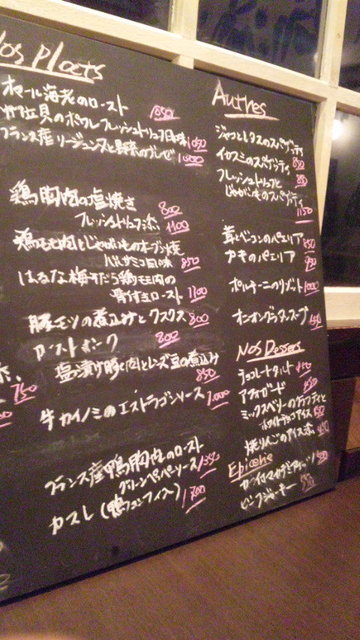 Nos Plats
オマール海老のロースト 1050
フレッシュトリュフ風味 1050
フランス産 1000
鶏胸肉の塩焼き 800
フレッシュトリュフ添 1100
鶏もも肉とじゃがいものオーブン焼
850
はるな梅そだち鶏モモ肉の
骨付きロースト 1100
豚モツの煮込みとクスクス 800
ローストポーク 800
塩漬け豚肉とレンズ豆の煮込み
850
牛カイノミのエストラゴンソース 1,000
フランス産鴨胸肉のロースト
グリーンペッパーソース 1350
カスレ(鴨コンフィ入) 1700
750
Autres
スパゲッティ
イカスミのスパゲッティ 850
フレッシュトリュフと
じゃがいものスパゲッティ
1150
茸とベーコンのパエリア 850
アサリのパエリア
ポルチーニのリゾット 1000
オニオングラタンスープ
Nos Desserts
チョコレートタルト
アフォガード
ミックスベリーのグラタンと
ホワイトチョコアイス
焼りんごのアイス添
Epicerie
ジンジャーキー